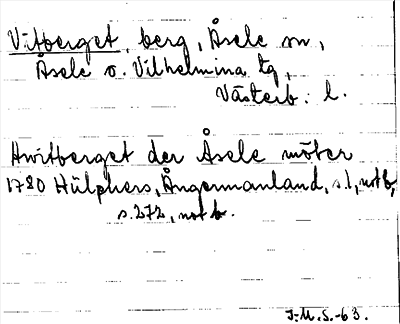 Vitberget, berg, Åsele sn,
Åsele o. Vilhelmina tg,
Västerb. l.
Hwitberget der Åsele möter
1780 Hülphers, Ångermanland, s. 1, not b,
s. 272, not b.
J.M.S.-63.